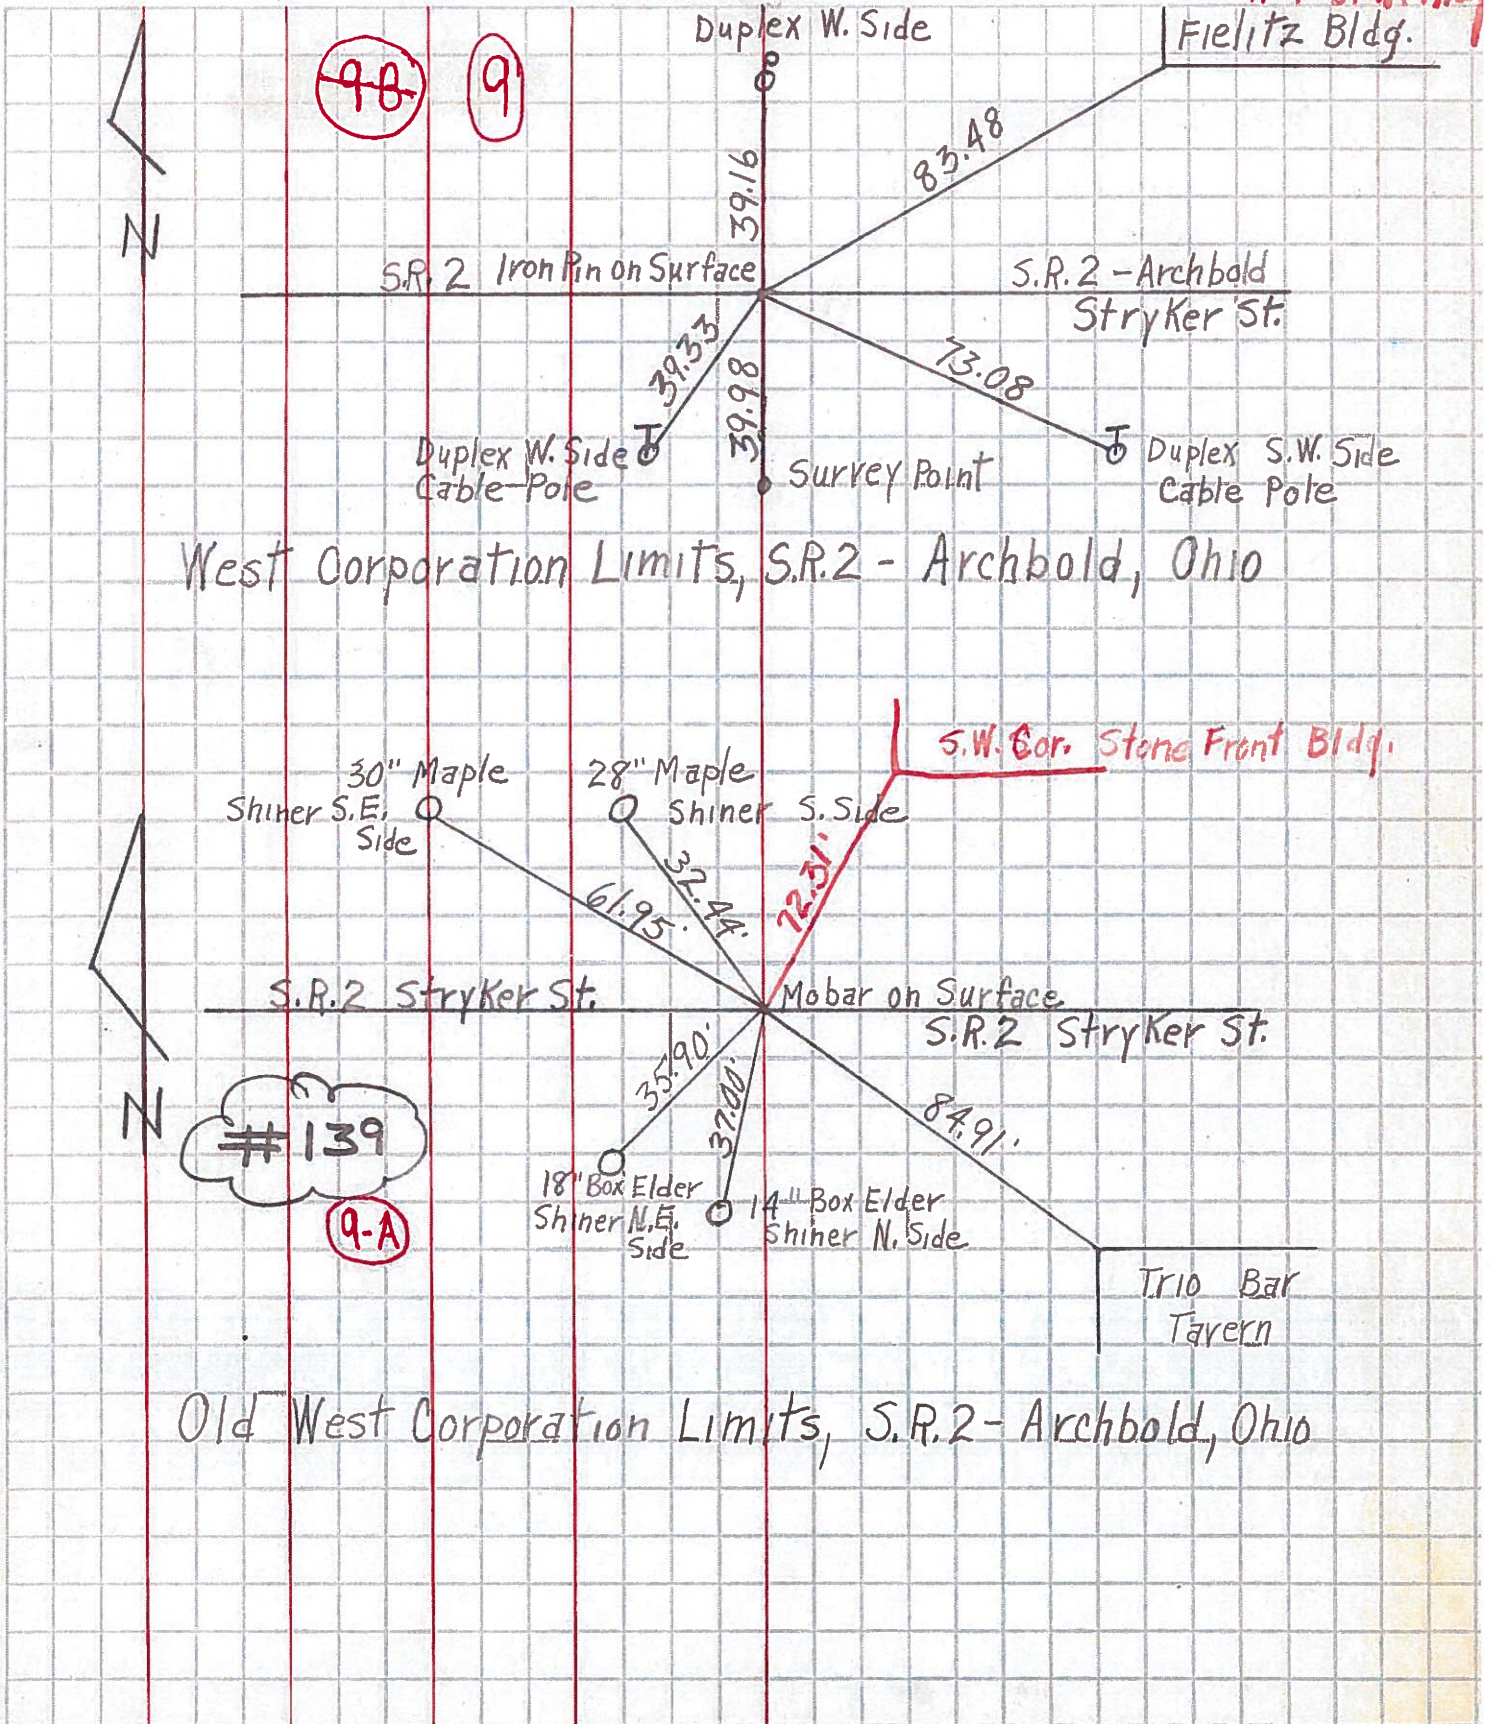 Duplex W. Side
Fielitz Bldg.
9-B
9
39.16
83.48
N
S.R. 2 Iron Pin on Surface
S.R. 2 - Archbold
Stryker St.
39.33
39.98
73.08
Duplex W. Side
Cable Pole
Survey Point
Duplex S.W. Side
Cable Pole
West Corporation Limits, S.R.2 - Archbold, Ohio
S.W. Cor. Stone Front Bldg.
30" Maple
Shiner S.E.
Side
28" Maple
Shiner S. Side
61.95'
32.44'
72.31'
S.R.2 Stryker St.
Mobar on Surface
S.R.2 Stryker St.
N
#139
9-A
35.90'
37.00'
84.91'
18" Box Elder
Shiner N.E.
Side
14" Box Elder
Shiner N. Side
Trio Bar
Tavern
Old West Corporation Limits, S.R.2 - Archbold, Ohio